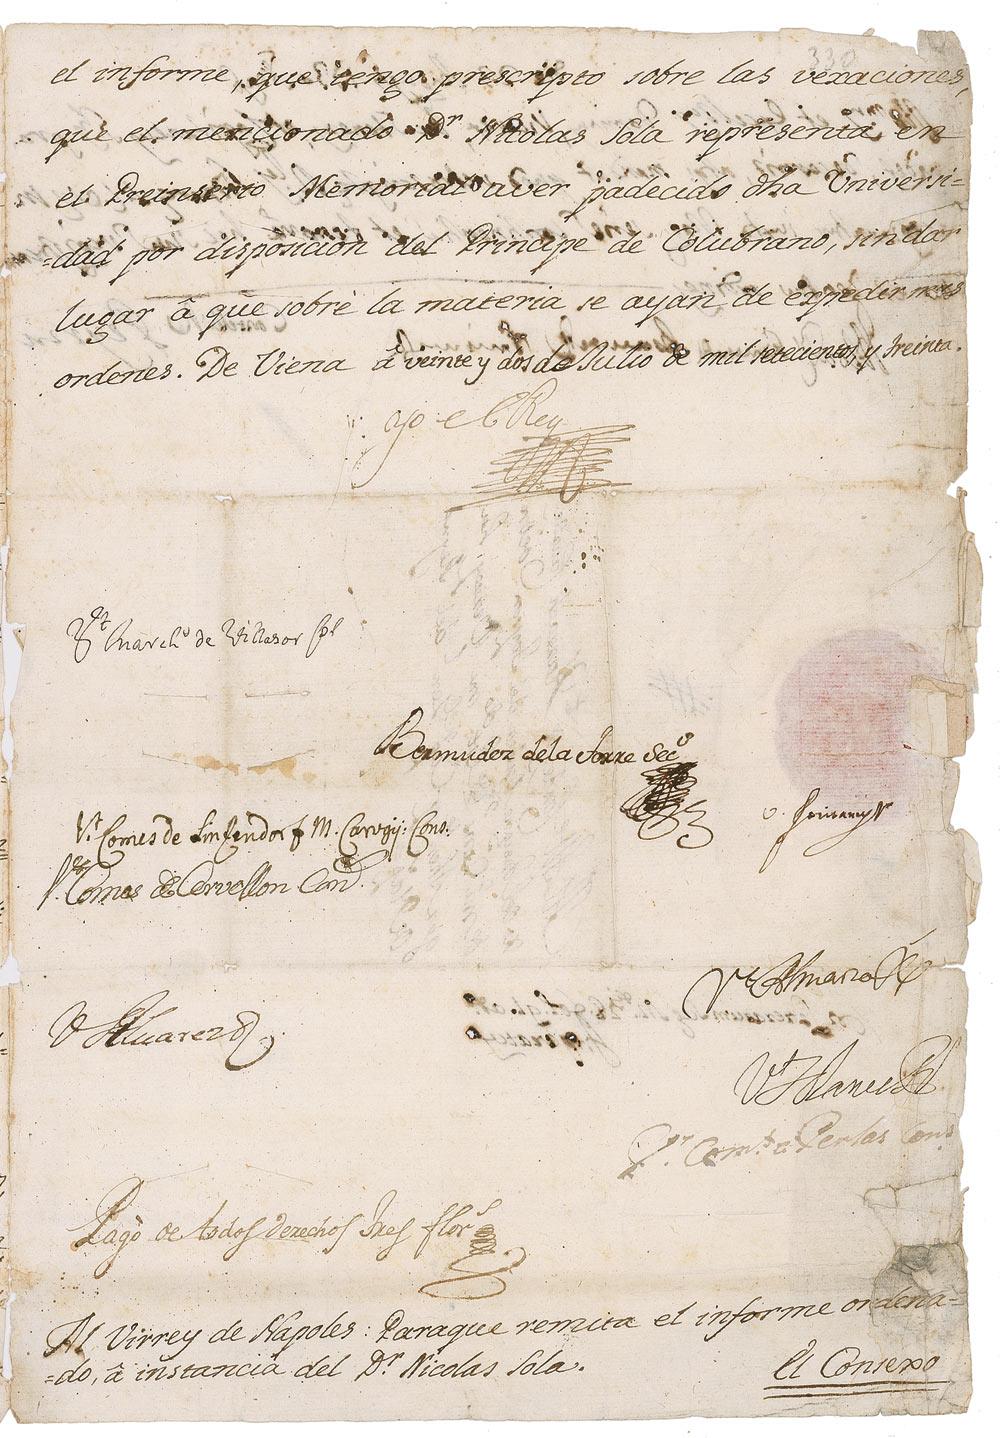 330
el informe, que tengo prescripto sobre las vexaciones,
que el mencionado Dr. Nicolas Sola representa en
el Preinserto Memorial aver padecido dha Universi=
=dad por disposicion del Principe de Colubrano, sin dar
lugar â que sobre la materia se ayan de expedir mas
ordenes. De Viena â veinte y dos de Julio de mil setecientos, y treinta.
Yo el Rey
Vt. March.o de Villasor Pl
Bermudez de la Torre Sec.o
Vt. Comes de M. Cons.
Vt. Comes de Cervellon Con
Vt Almarz
V Alvarez
Vt
Vt Com. a Perlas Cons
Pagò de todos derechos tres flor.s
Al Virrey de Napoles: Paraque remita el informe ordena=
=do, â instancia del Dr. Nicolas Sola.
El Consexo